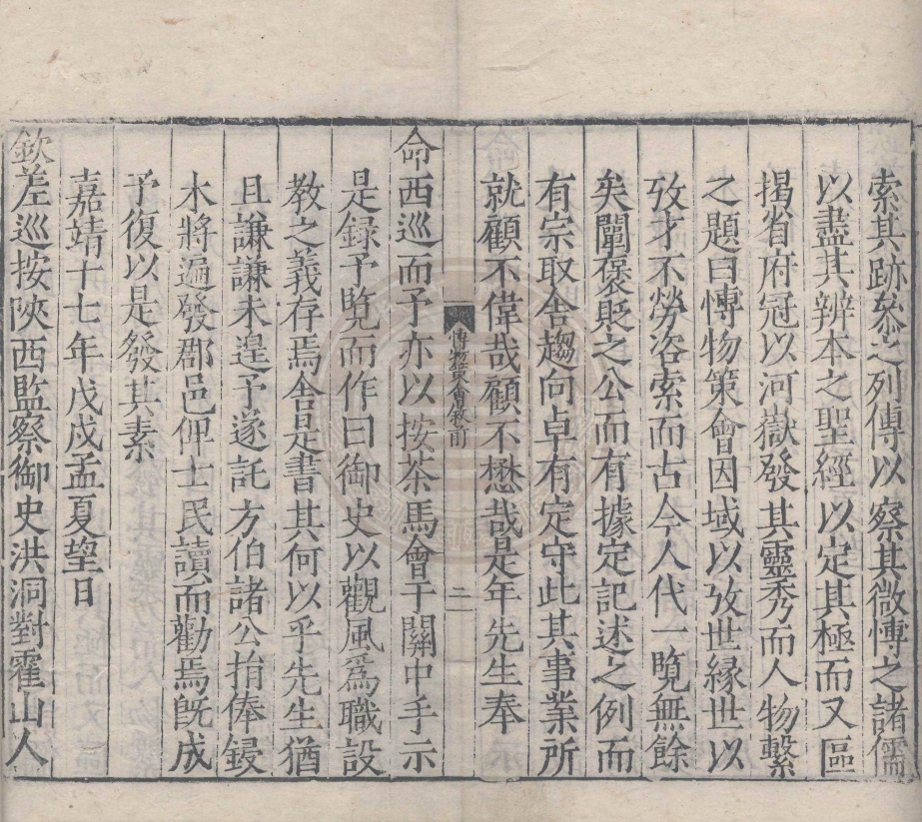 索其跡叅之列傳以察其微慱之諸儒
以盡其辨本之聖經以定其極而又區
揭省府冠以河嶽發其靈秀而人物繫
之題曰慱物策會因域以攷世縁世以
攷才不勞咨索而古今人代一覽無餘
矣闡褒貶之公而有據定記述之例而
有宗取舍趨向卓有定守此其事業所
就顧不偉哉顧不懋哉是年先生奉
慱物策會敘前
二
命西巡而予亦以按茶馬會于關中手示
是録予覽而作曰御史以觀風爲職設
教之義存焉舎是書其何以乎先生猶
且謙謙未遑予遂託方伯諸公捐俸鋟
木將遍發郡邑俾士民讀而勸焉旣成
予復以是發其素
嘉靖十七年戊戌孟夏望日
欽差巡按陝西監察御史洪洞對霍山人